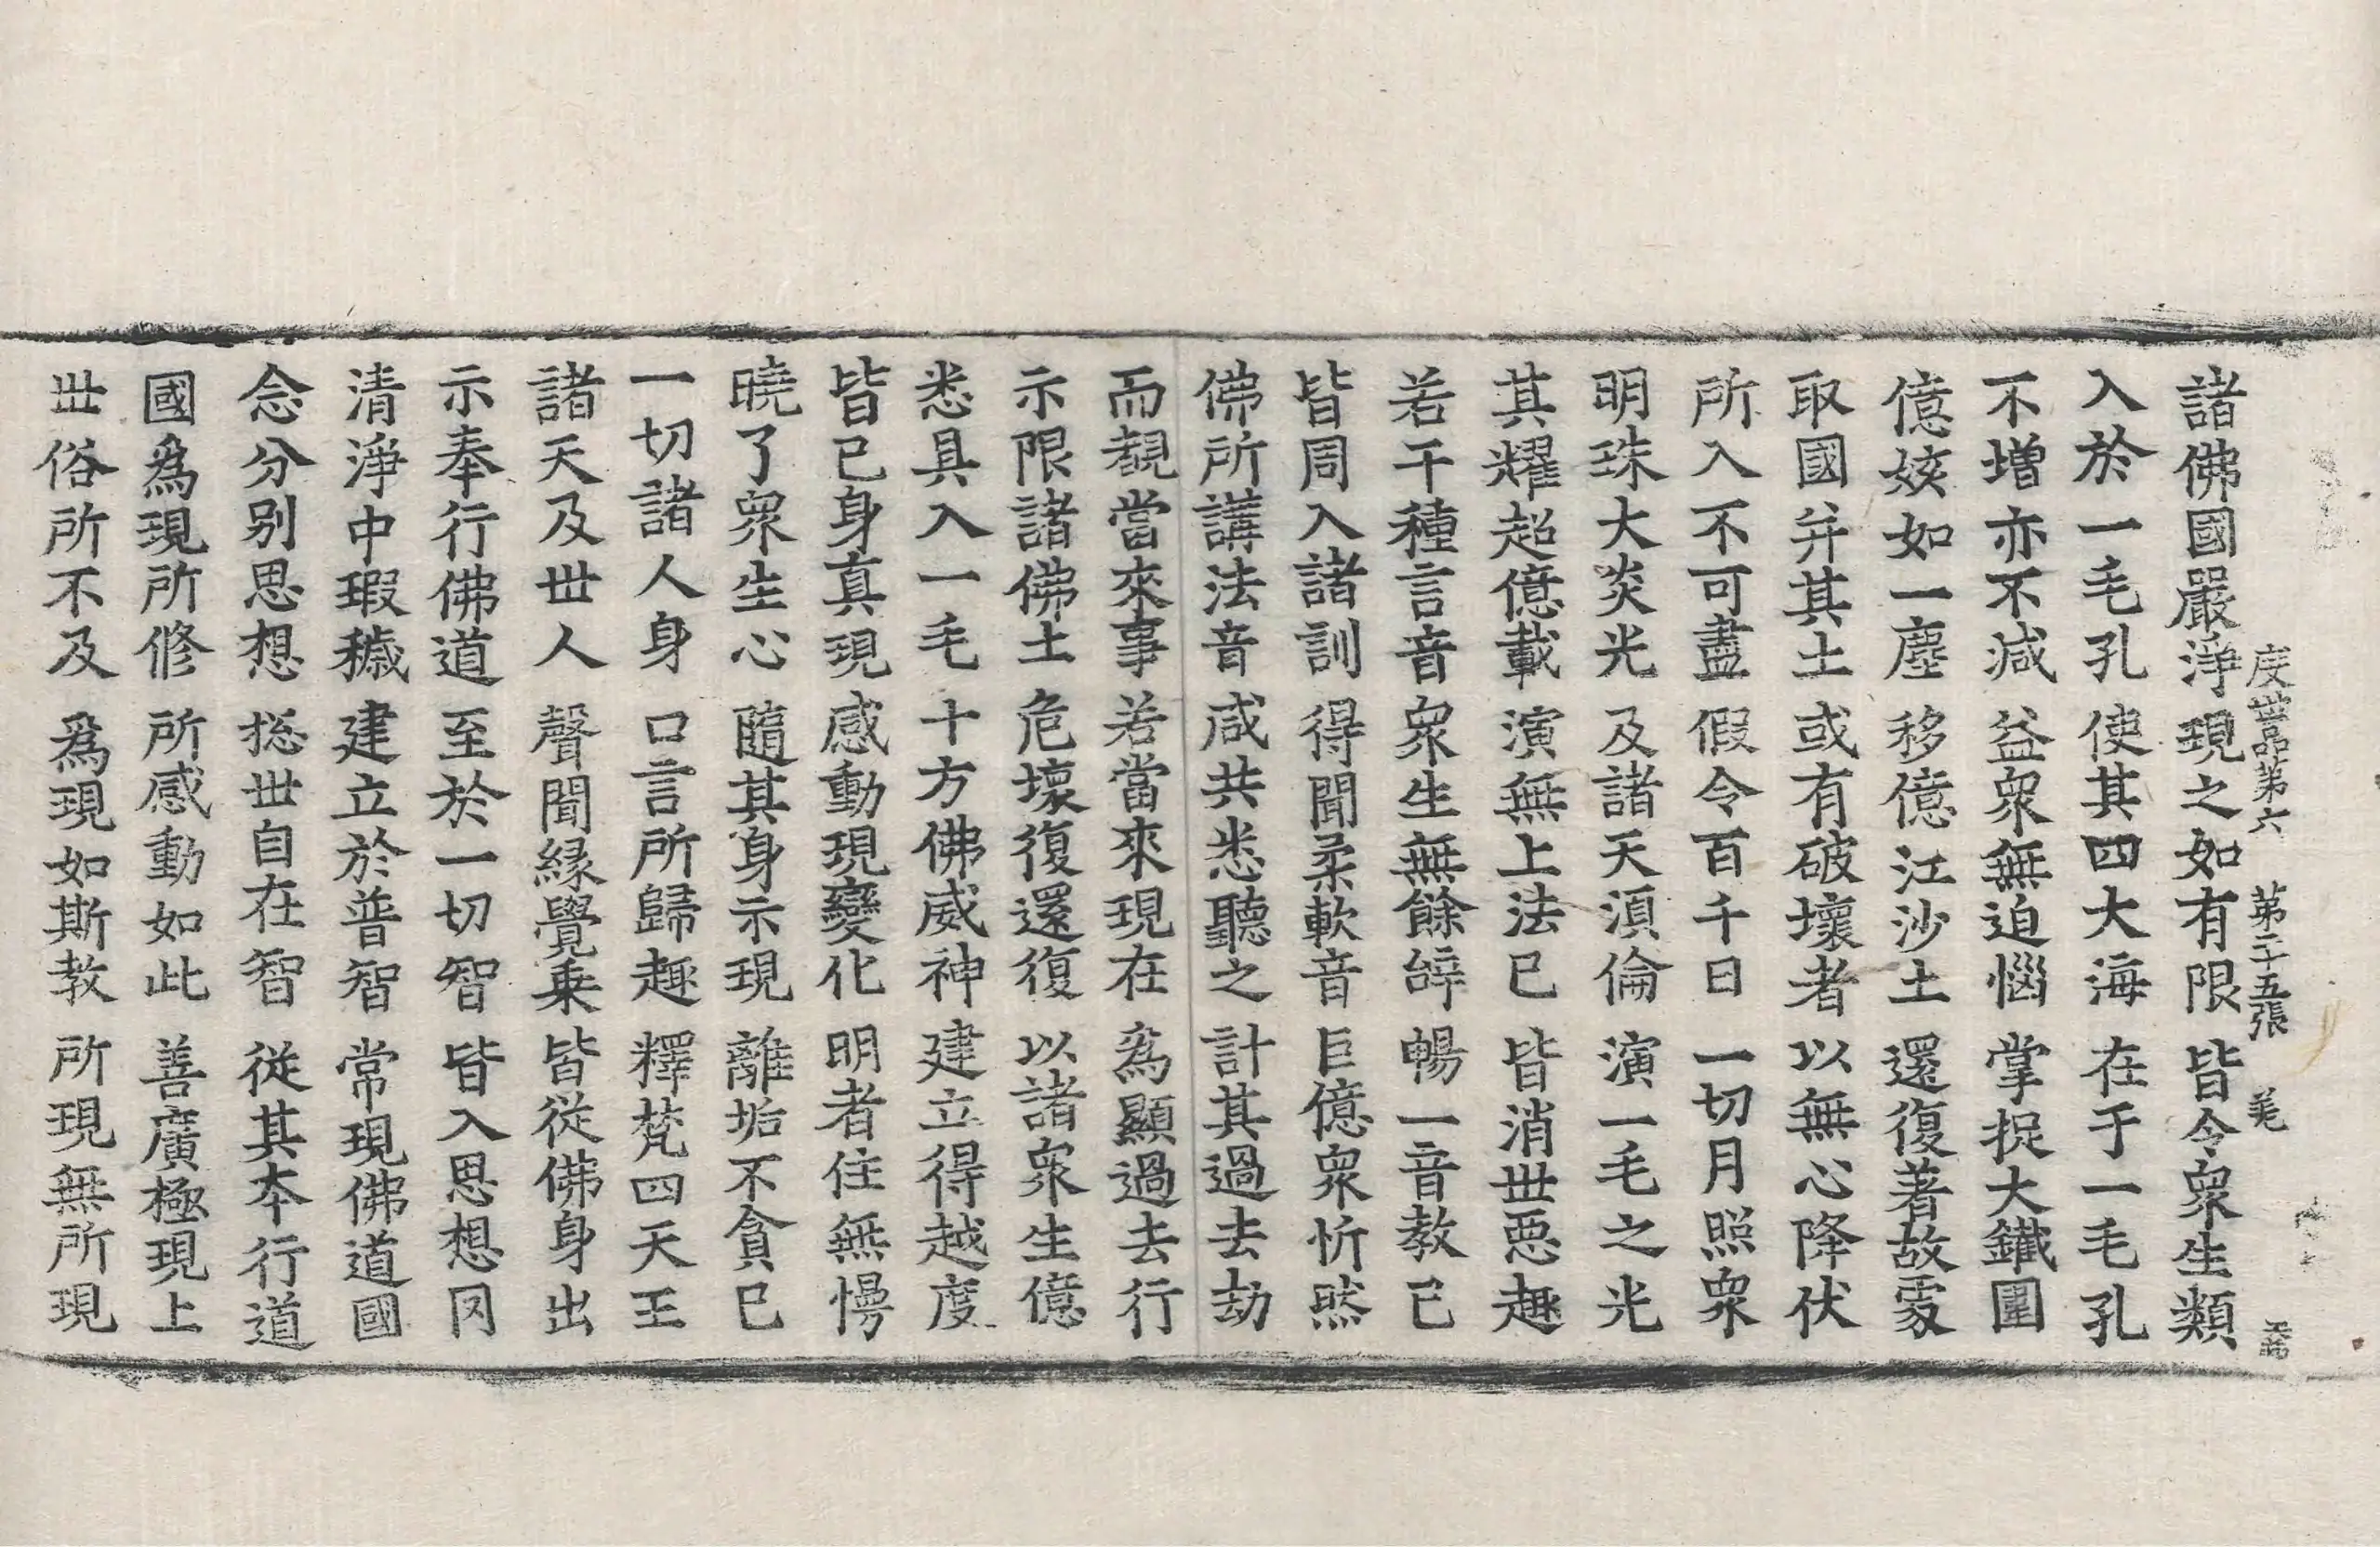 度世品第六 第二十五張 羙
諸佛國嚴淨 現之如有限 皆令衆生類
入於一毛孔 使其四大海 在于一毛孔
不增亦不減 益衆無迫惱 掌捉大鐵圍
億姟如一塵 移億江沙土 還復著故處
取國并其土 或有破壞者 以無心降伏
所入不可盡 假令百千日 一切月照衆
明珠大炎光 及諸天湏倫 演一毛之光
其耀超億載 演無上法已 皆消世惡趣
若干種言音 衆生無餘辝 暢一音教已
皆周入諸訓 得聞柔軟音 巨億衆忻然
佛所講法音 咸共悉聽之 計其過去劫
而覩當來事 若當來現在 爲顯過去行
示限諸佛土 危壞復還復 以諸衆生億
悉具入一毛 十方佛威神 建立得越度
皆已身真現 感動現變化 明者住無慢
曉了衆生心 隨其身示現 離垢不貪已
一切諸人身 口言所歸趣 釋梵四天王
諸天及世人 聲聞縁覺乗 皆從佛身出
示奉行佛道 至於一切智 皆入思想冈
清淨中瑕穢 建立於普智 常現佛道國
念分别思想 捴世自在智 從其夲行道
國爲現所修 所感動如此 善廣極現上
世俗所不及 爲現如斯教 所現無所現